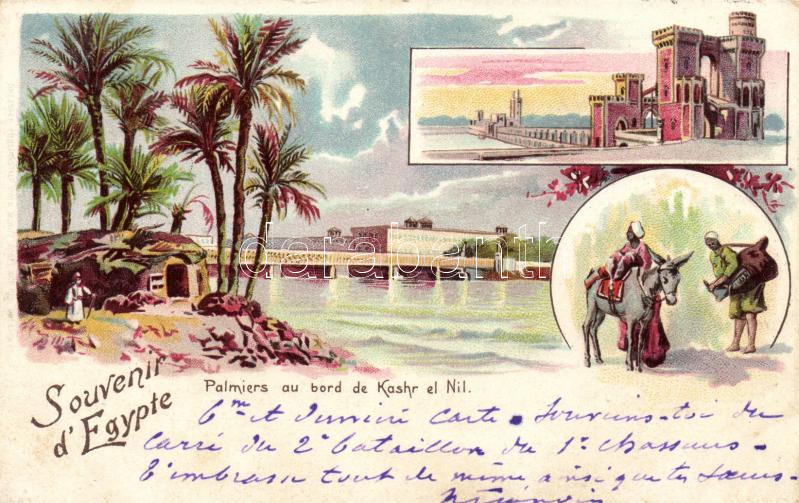 Souvenir
d'Egypte
Palmiers au bord de Kashr el Nil.
6me et dernière carte. Souviens-toi du
carré du 2e bataillon du 1er chasseurs-
t'embrasse tout de même, ainsi que tes sœurs-
darabanth.com